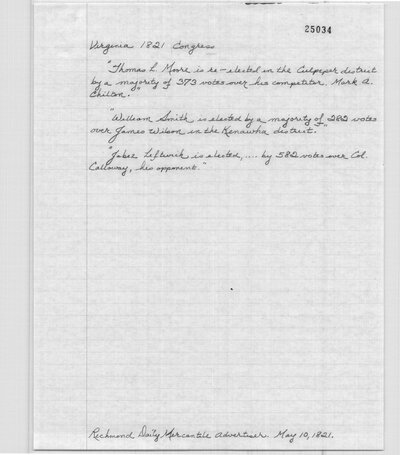 25034
Virginia 1821 Congress
"Thomas L. Moore is re-elected in the Culpeper district
by a majority of 373 votes over his competitor, Mark A.
Chilton."
"William Smith is elected by a majority of 282 votes
over James Wilson in the Kenawha district."
"Jabez Leftwich is elected, .... by 582 votes over Col.
Calloway, his opponent."
Richmond Daily Mercantile Advertiser. May 10, 1821.